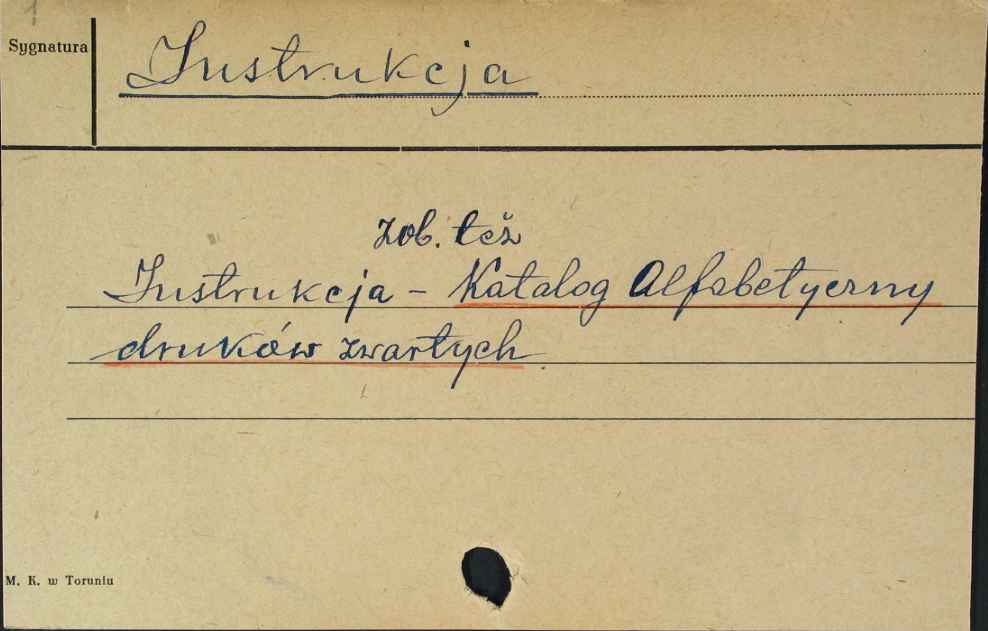 1
Sygnatura
Instrukcja
zob. też
Instrukcja - Katalog Alfabetyczny
druków zwartych.
M. K. w Toruniu